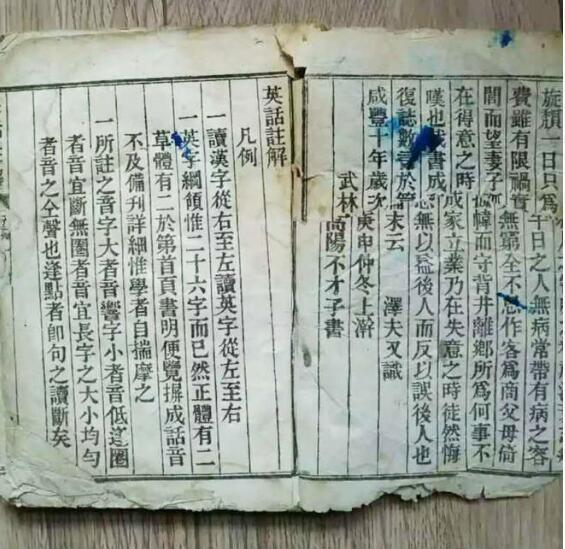 一日只爲午日之人無病常帶有病之容
費雖有限禍實無窮全不思作客爲商父母倚
閭而望妻子幃而守背井離鄉所爲何事不
在得意之時成家立業乃在失意之時徒然悔
嘆也哉書成恐無以益後人而反以誤後人也
復誌數語於簡末云 澤夫又識
咸豐十年歲次庚申仲冬上澣
武林高陽不才子書
英話註解
凡例
一讀漢字從右至左讀英字從左至右
一英字綱領惟二十六字而已然正體有二
草體有二於第首頁書明便覽攤成話音
不及備刊詳細惟學者自揣摩之
一所註之音字大者音響字小者音低逢圈
者音宜斷無圈者音宜長字之大小均勻
者音之仝聲也逢點者卽句之讀斷矣